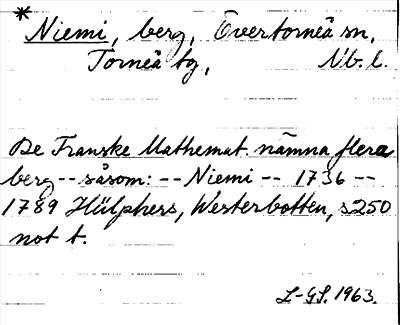 * Niemi, berg, Övertorneå sn,
Torneå tg, Nb. l.
De Franske Mathemat. nämna flera
berg -- såsom: -- Niemi -- 1736 --
1789 Hülphers, Westerbotten, s250
not t.
L-GS. 1963.